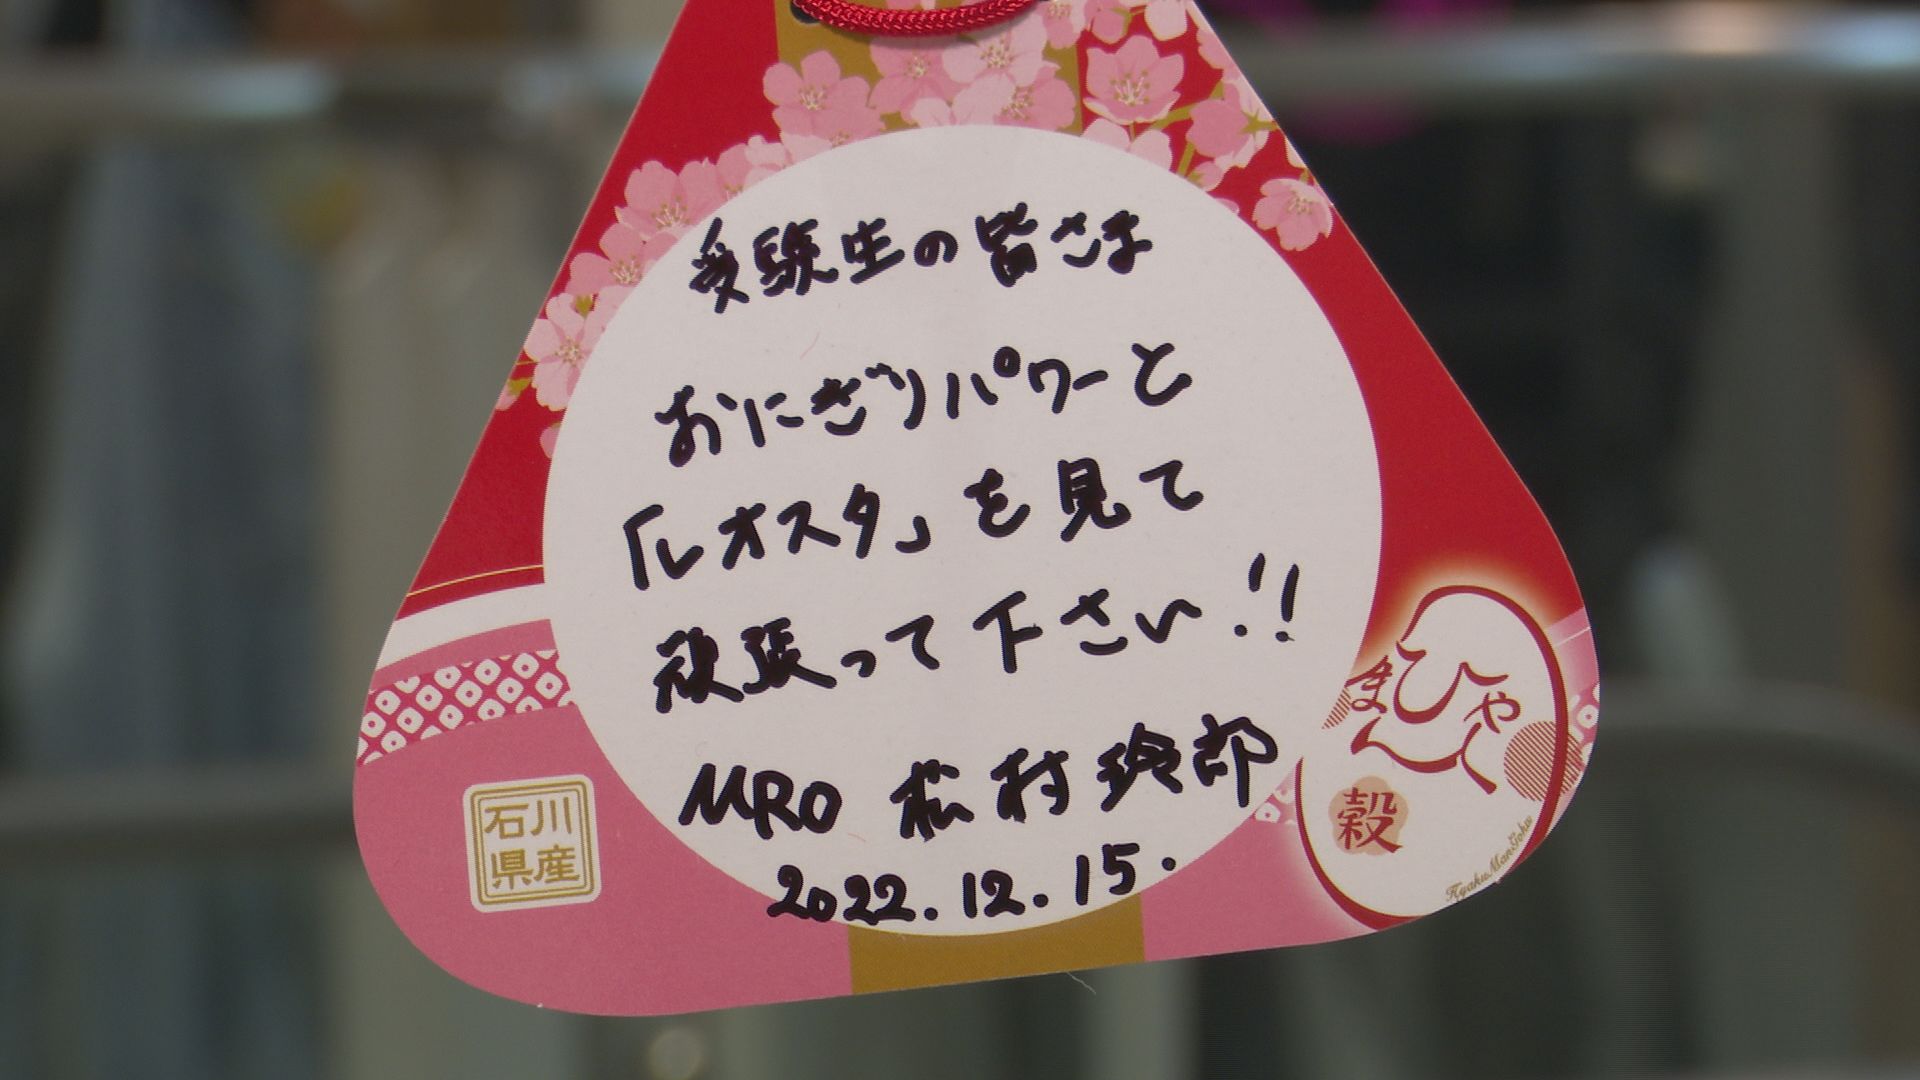 受験生の皆さま
おにぎりパワーと
「レオスタ」を見て
頑張って下さい!!
MRO 松村玲郎
2022.12.15.
石川
県産
ひゃく
まん
穀
HyakuManGoku